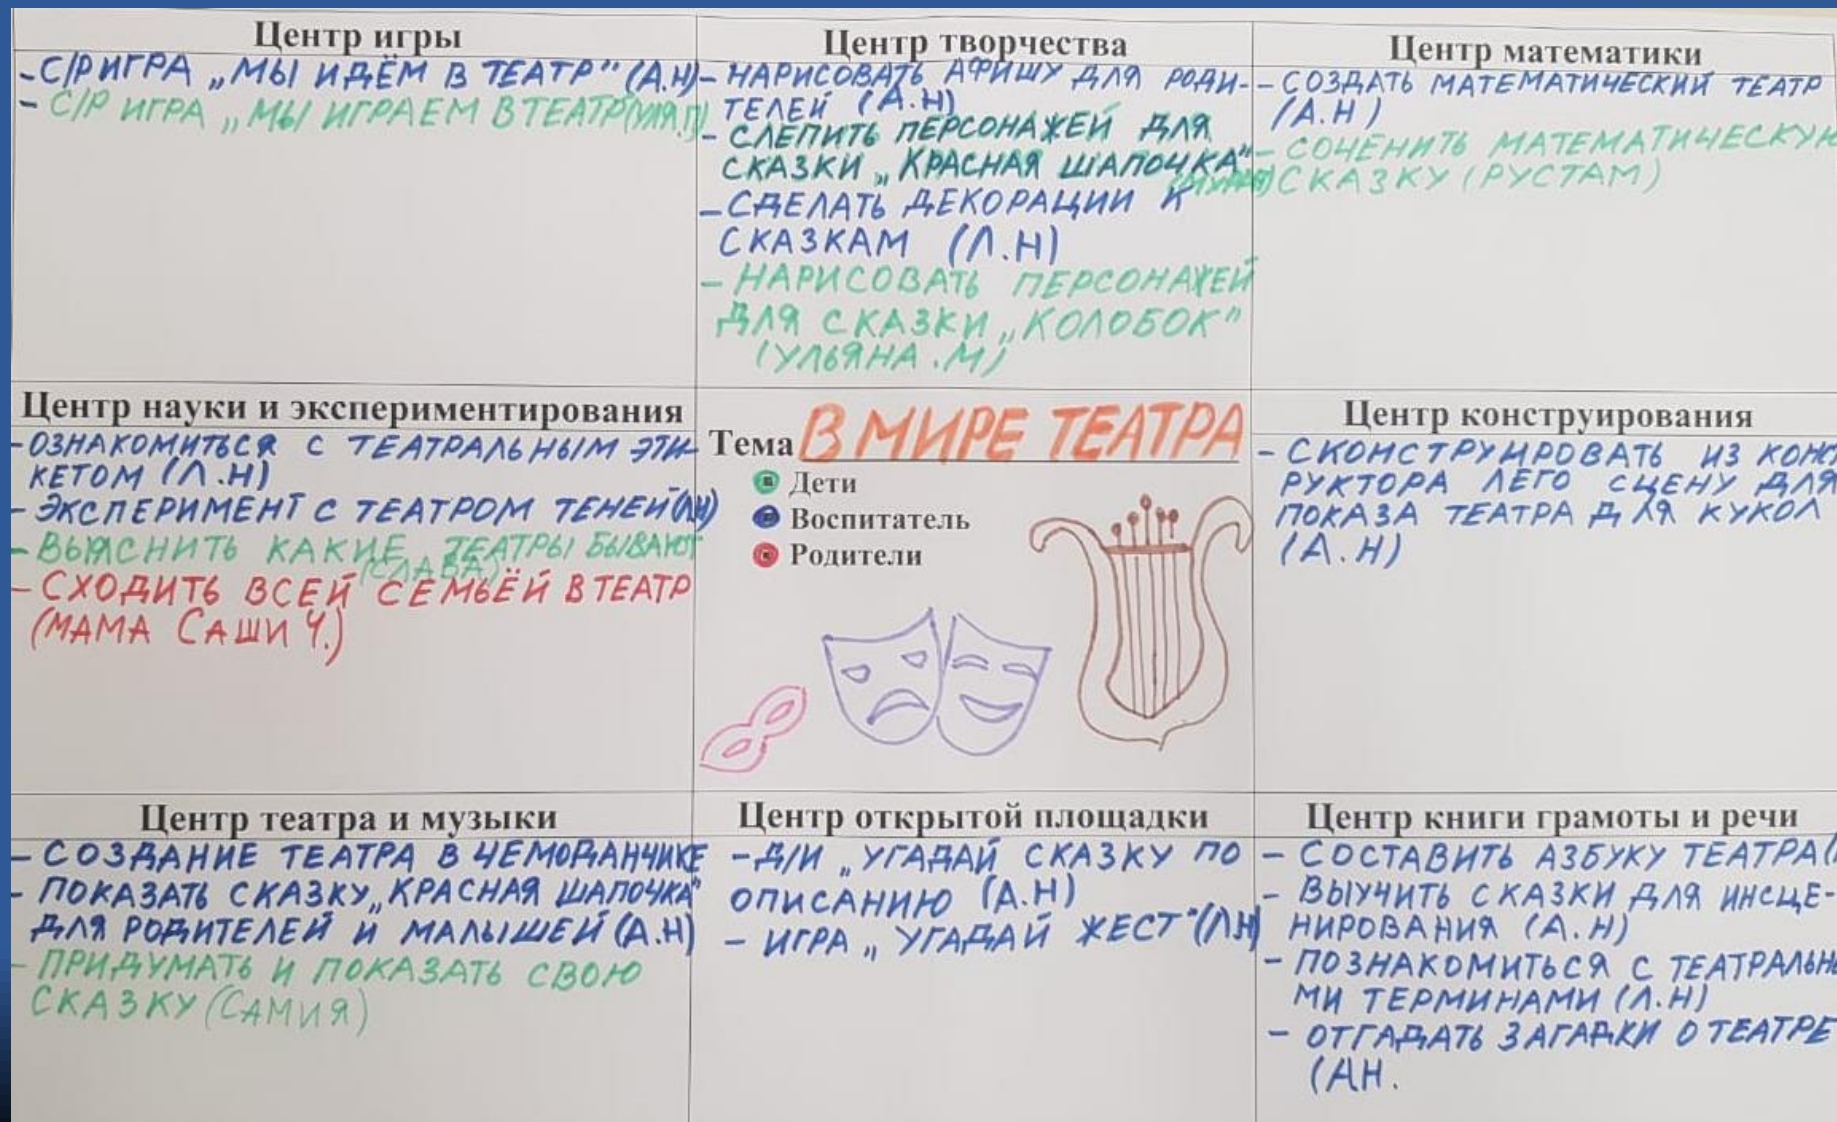 Центр игры
- С/Р ИГРА „МЫ ИДЁМ В ТЕАТР" (А.Н)
- С/Р ИГРА „МЫ ИГРАЕМ В ТЕАТР
Центр творчества
- НАРИСОВАТЬ АФИШУ ДЛЯ РОДИ-
ТЕЛЕЙ (А.Н)
- СЛЕПИТЬ ПЕРСОНАЖЕЙ ДЛЯ
СКАЗКИ „КРАСНАЯ ШАПОЧКА"
- СДЕЛАТЬ ДЕКОРАЦИИ К
СКАЗКАМ (Л.Н)
- НАРИСОВАТЬ ПЕРСОНАЖЕЙ
ДЛЯ СКАЗКИ „КОЛОБОК"
(УЛЬЯНА.М)
Центр математики
- СОЗДАТЬ МАТЕМАТИЧЕСКИЙ ТЕАТР
(А.Н)
- СОЧЕНИТЬ МАТЕМАТИЧЕСКУЮ
СКАЗКУ (РУСТАМ)
Центр науки и экспериментирования
- ОЗНАКОМИТЬСЯ С ТЕАТРАЛЬНЫМ ЭТИ-
КЕТОМ (Л.Н)
- ЭКСПЕРИМЕНТ С ТЕАТРОМ ТЕНЕЙ (ЛН)
- ВЫЯСНИТЬ КАКИЕ ТЕАТРЫ БЫВАЮТ
(СЛАВА)
- СХОДИТЬ ВСЕЙ СЕМЬЁЙ В ТЕАТР
(МАМА САШИ Ч.)
Тема В МИРЕ ТЕАТРА
Дети
Воспитатель
Родители
Центр конструирования
- СКОНСТРУИРОВАТЬ ИЗ КОНСТ
РУКТОРА ЛЕГО СЦЕНУ ДЛЯ
ПОКАЗА ТЕАТРА ДЛЯ КУКОЛ
(А.Н)
Центр театра и музыки
- СОЗДАНИЕ ТЕАТРА В ЧЕМОДАНЧИКЕ
- ПОКАЗАТЬ СКАЗКУ „КРАСНАЯ ШАПОЧКА"
ДЛЯ РОДИТЕЛЕЙ И МАЛЫШЕЙ (А.Н)
- ПРИДУМАТЬ И ПОКАЗАТЬ СВОЮ
СКАЗКУ (САМИЯ)
Центр открытой площадки
- Д/И „УГАДАЙ СКАЗКУ ПО
ОПИСАНИЮ (А.Н)
- ИГРА „УГАДАЙ ЖЕСТ" (ЛН)
Центр книги грамоты и речи
- СОСТАВИТЬ АЗБУКУ ТЕАТРА
- ВЫУЧИТЬ СКАЗКИ ДЛЯ ИНСЦЕ-
НИРОВАНИЯ (А.Н)
- ПОЗНАКОМИТЬСЯ С ТЕАТРАЛЬНЫ
МИ ТЕРМИНАМИ (Л.Н)
- ОТГАДАТЬ ЗАГАДКИ О ТЕАТРЕ
(АН.